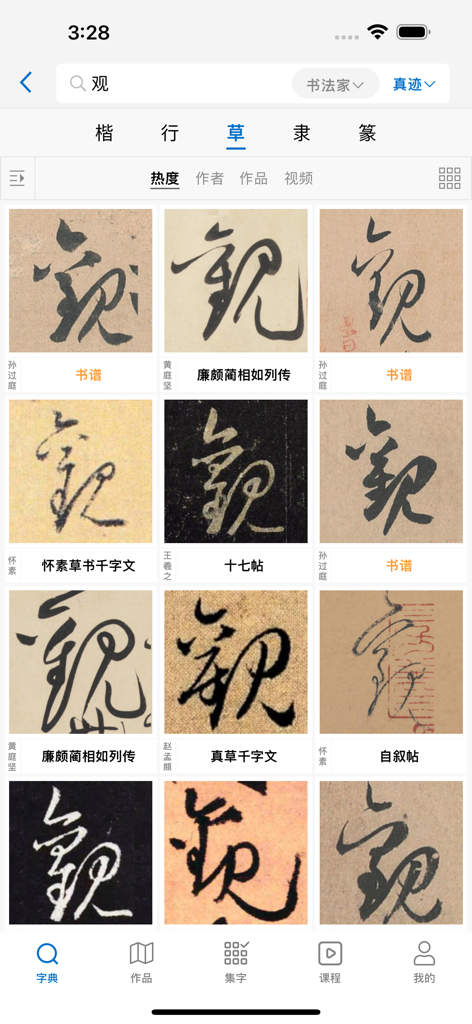 3:28
观
书法家
真迹
楷 行 草 隶 篆
热度 作者 作品 视频
觀 觀 觀
孙过庭 书谱
黄庭坚 廉颇蔺相如列传
孙过庭 书谱
觀 觀 觀
怀素 怀素草书千字文
王羲之 十七帖
孙过庭 书谱
觀 觀 觀
黄庭坚 廉颇蔺相如列传
赵孟頫 真草千字文
怀素 自叙帖
觀 觀 觀
字典 作品 集字 课程 我的